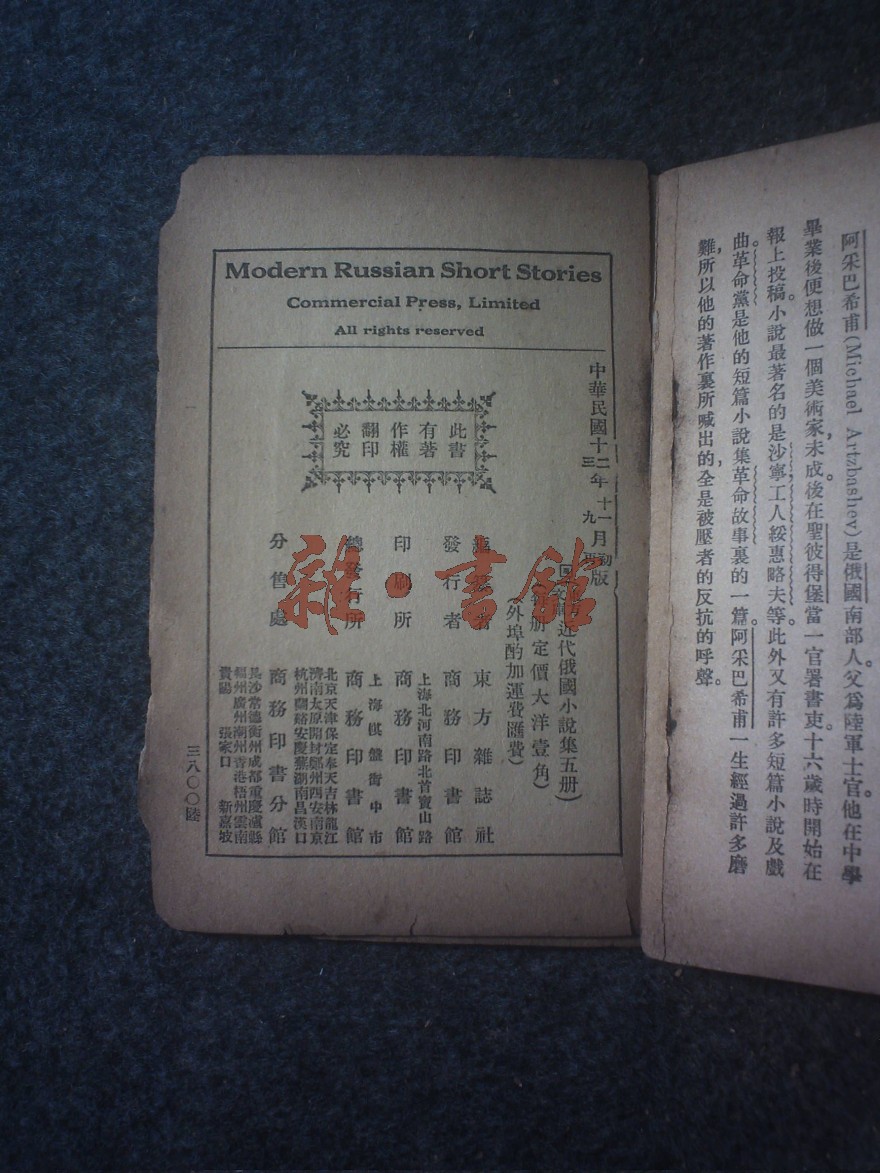 阿采巴希甫(Michael Artzbashev)是俄國南部人。父爲陸軍士官。他在中學
畢業後便想做一個美術家,未成。後在聖彼得堡當一官署書吏。十六歲時開始在
報上投稿。小說最著名的是沙寧,工人綏惠略夫等。此外又有許多短篇小說及戲
曲。革命黨是他的短篇小說集革命故事裏的一篇。阿采巴希甫一生經過許多磨
難,所以他的著作裏所喊出的,全是被壓者的反抗的呼聲。
Modern Russian Short Stories
Commercial Press, Limited
All rights reserved
中華民國十二年十一月初版
三 九 再
近代俄國小說集五册)
册定價大洋壹角)
(外埠酌加運費匯費)
此書
有著
作權
翻印
必究
編纂者 東方雜誌社
發行者 商務印書館
上海北河南路北首寶山路
印刷所 商務印書館
上海棋盤街中市
總發行所 商務印書館
北京天津保定奉天吉林龍江
濟南太原開封鄭州西安南京
杭州蘭谿安慶蕪湖南昌漢口
分售處 商務印書分館
長沙常德衡州成都重慶瀘縣
福州廣州潮州香港梧州雲南
貴陽 張家口 新嘉坡
三八〇〇陸
雜·書館